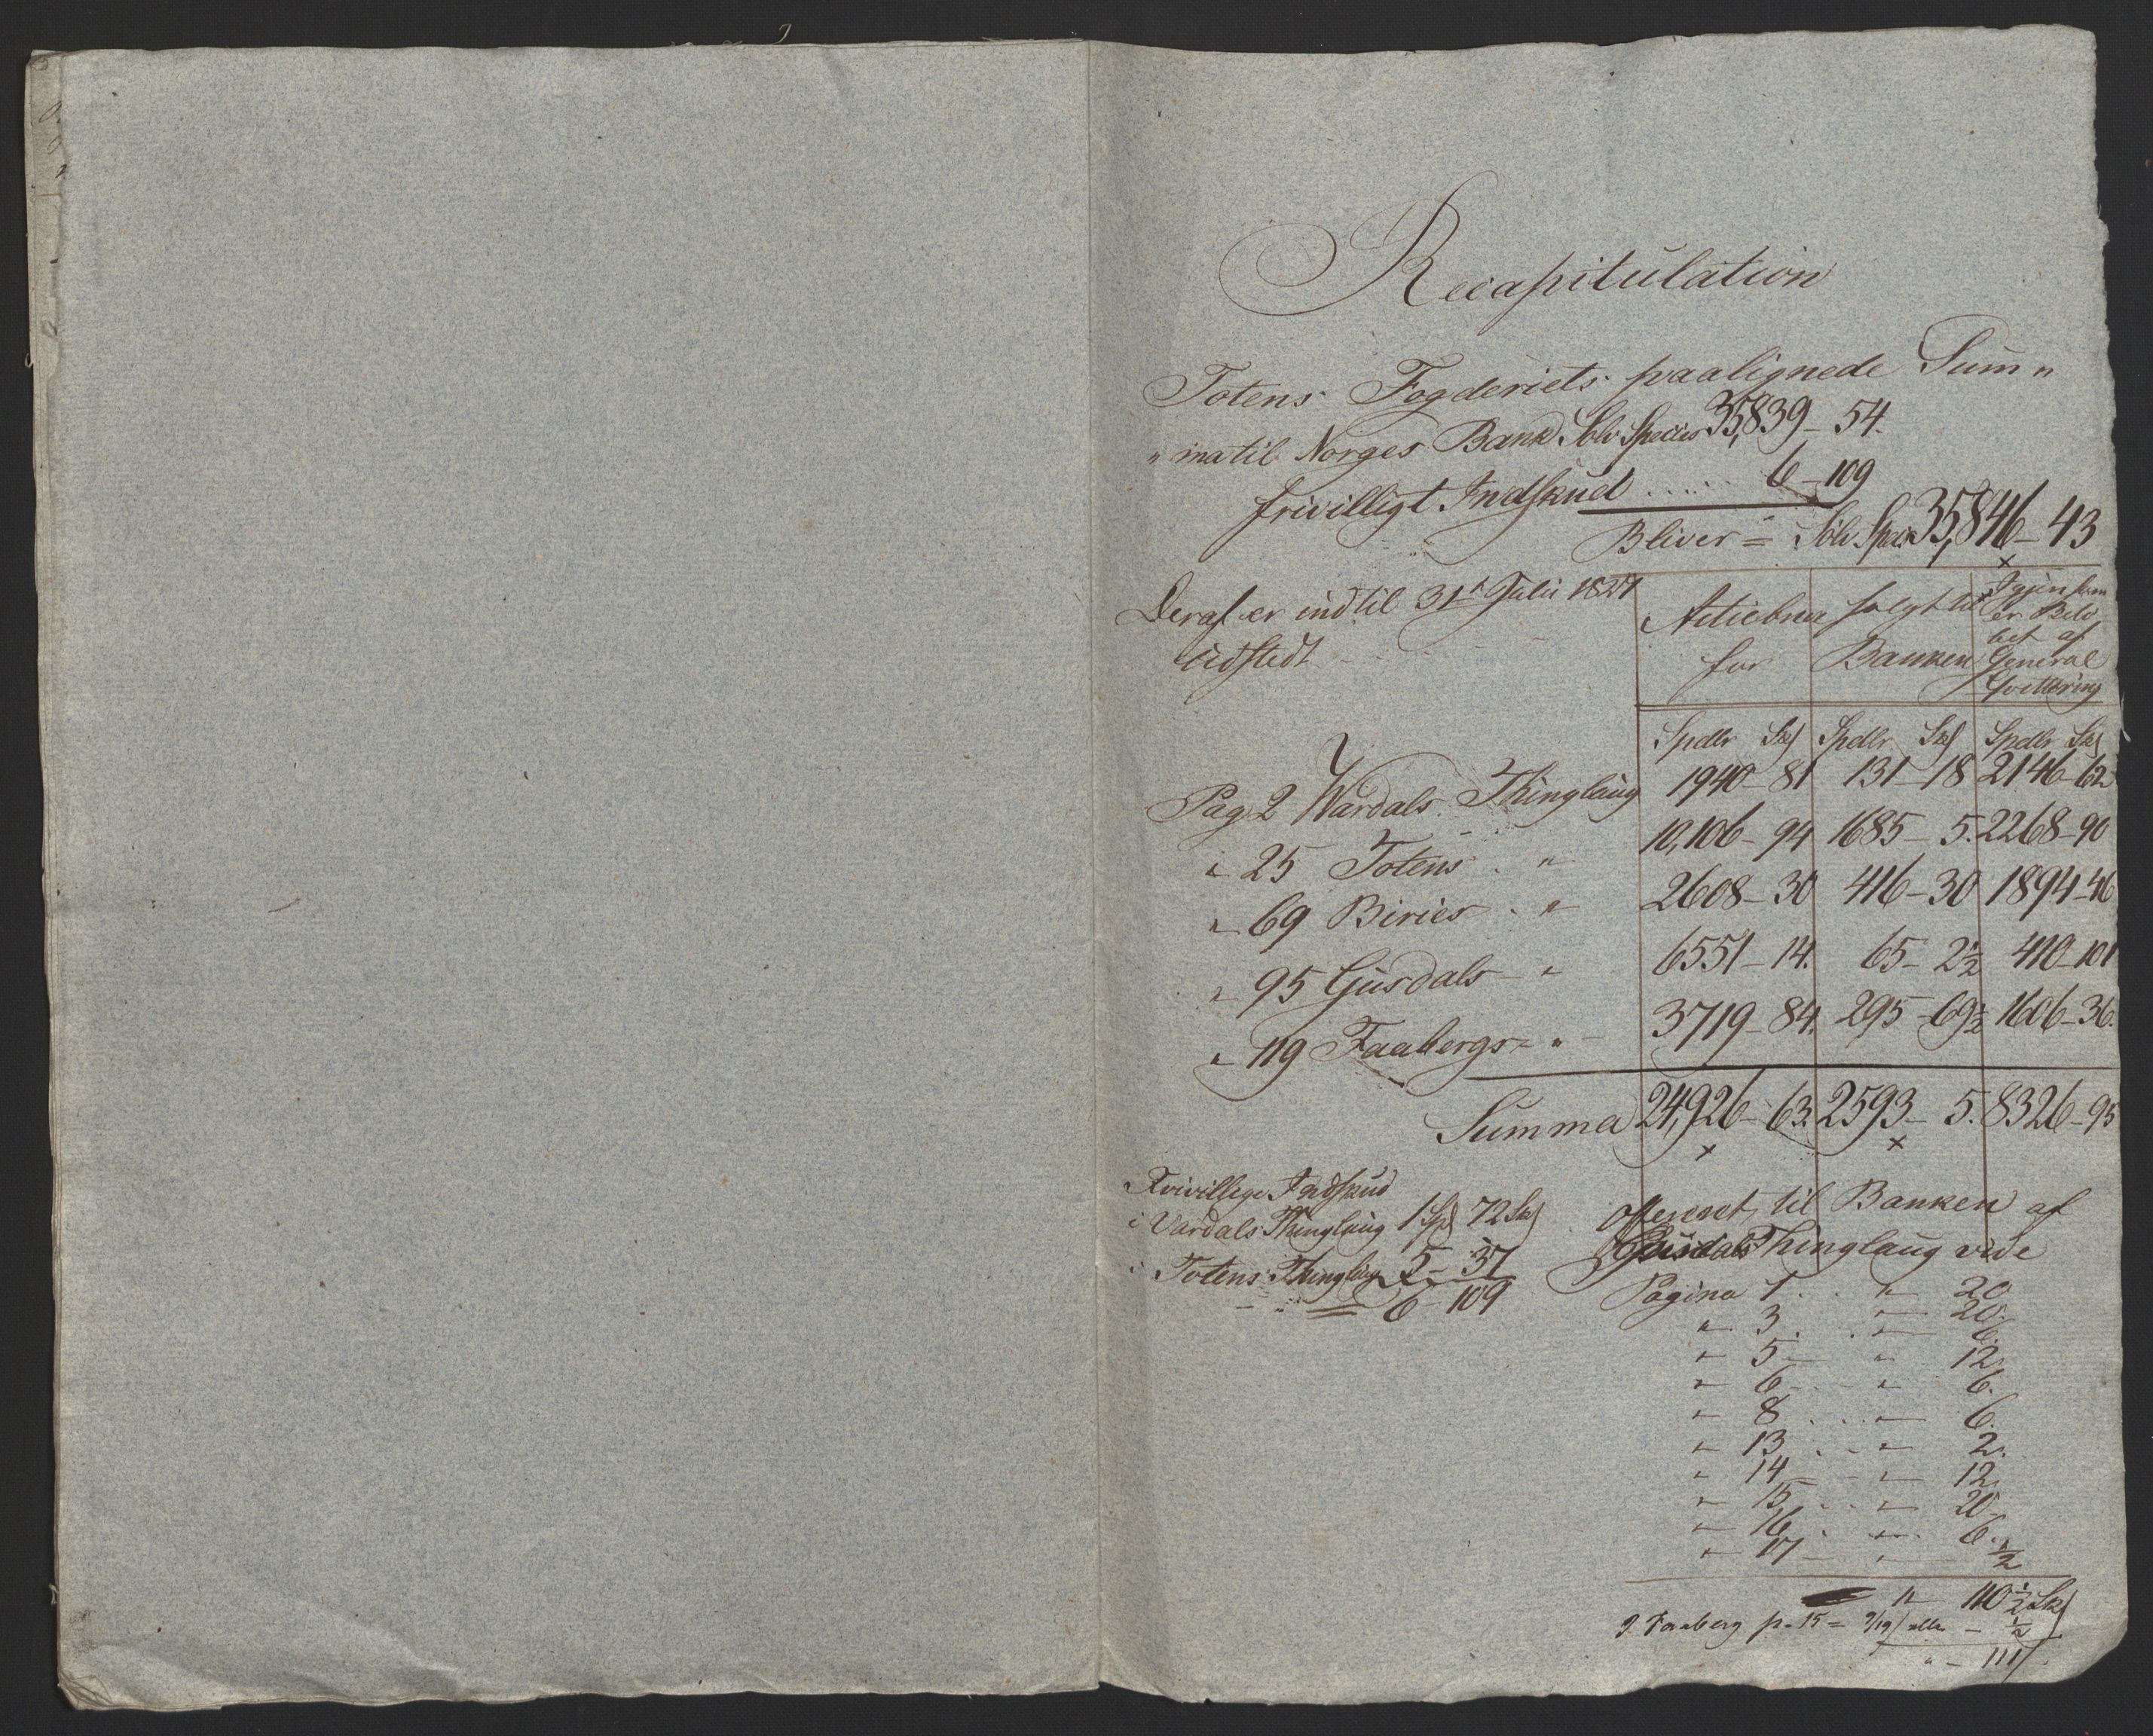 Recapitulation
Totens Fogderiets paalignede Sum„
„ma til Norges Bank Sølv Species 35,839 – 54.
frivilligt Indskud ...... 6 – 109
Bliver = Sølv Spec 35,846 – 43
Deraf er indtil 31te Julii 1821
udstedt
Actiebreve for
solgt til Banken
Igjen kommer Beløbet af General Qvittering
Spdlr Sk Spdlr Sk Spdlr Sk
Pag 2 Wardals Thinglaug 1940 – 81 131 – 18 2146 – 62
" 25 Totens " 10,106 – 94 1685 – 5. 2268 – 90
" 69 Biries " 2608 – 30 416 – 30 1894 – 46
" 95 Gusdals " 6551 – 14. 65 – 2½ 410 – 101
" 119 Faabergs " 3719 – 84. 295 – 69½ 1606 – 36.
Summa 24,926 – 63. 2593 – 5. 8326 – 95
Frivillige Indskud
i Vardals Thinglaug 1 Sp 72 Sk
i Totens Thinglaug 5 – 37
6 – 109
Offereret til Banken af
Gusdals Thinglaug vide
Pagina 1 . . " 20
" 3 . . " 20.
6.
" 5 – " 12.
" 6 – " 6.
" 8 . . . " 6.
" 13 . – " 2.
" 14 – – " 12.
" 15 . . " 20
" 16 . " 6.
" 17 – " ½
" 110½ Sk
I Faaberg p. 15 = – ½
" – 111